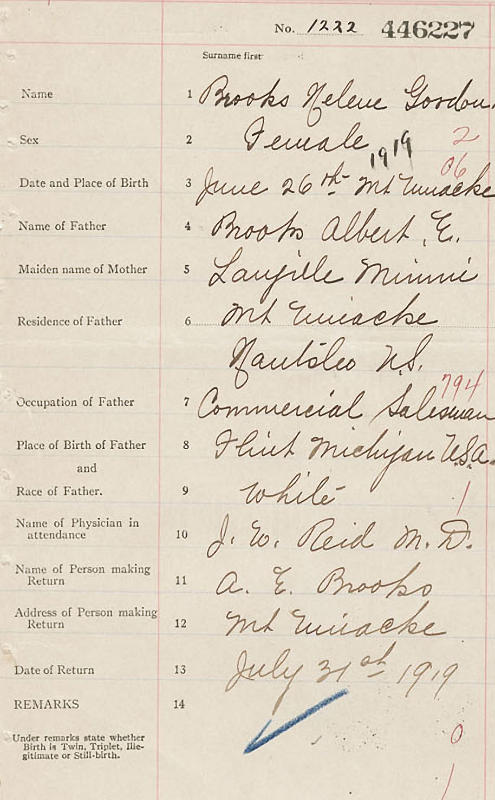 No. 1222 446227
Surname first
Name 1 Brooks Helene Gordon.
Sex 2 Female 2
1919 06
Date and Place of Birth 3 June 26th Mt Uniacke
Name of Father 4 Brooks Albert E.
Maiden name of Mother 5 Langille Minnie
Residence of Father 6 Mt Uniacke
Hants Co N.S.
794
Occupation of Father 7 Commercial Salesman
Place of Birth of Father 8 Flint Michigan U.S.A.
and
Race of Father. 9 White 1
Name of Physician in
attendance 10 J. W. Reid M.D.
Name of Person making
Return 11 A. E. Brooks
Address of Person making
Return 12 Mt Uniacke
Date of Return 13 July 31st 1919
REMARKS 14
Under remarks state whether
Birth is Twin, Triplet, Ille-
gitimate or Still-birth.
0
1